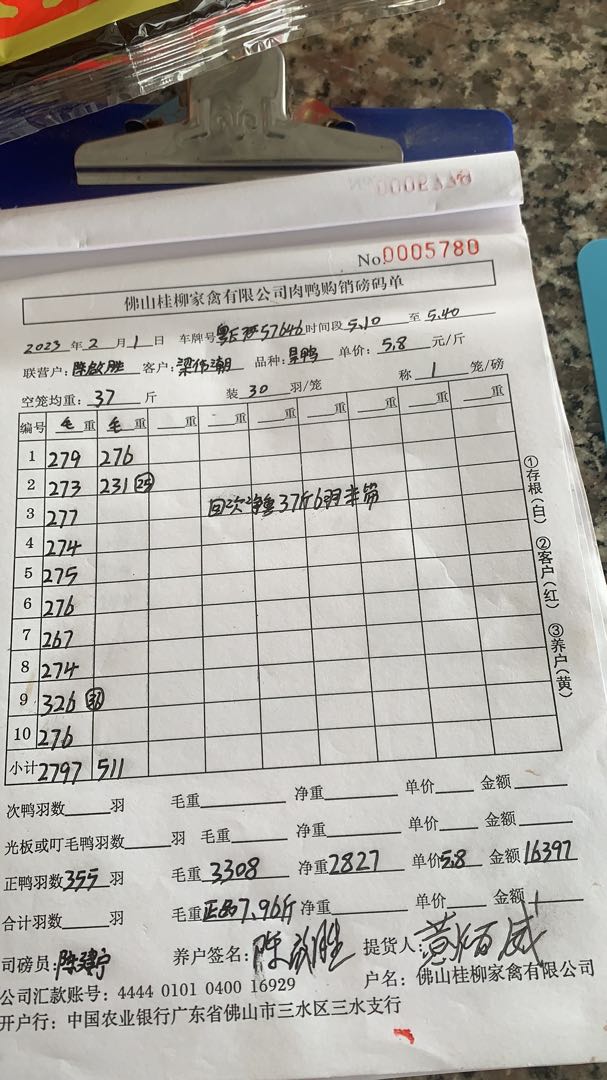 No.0005780
佛山桂柳家禽有限公司肉鸭购销磅码单
2023年2月1日 车牌号 57646 时间段5.10至5.40
联营户:陈啟胜 客户:梁伟潮 品种:旱鸭 单价:5.8元/斤
空笼均重:37斤 装30羽/笼 称1笼/磅
编号 毛重 毛重 重 重 重 重 重 重
1 279 276
2 273 231 25
3 277 回次 37斤6羽
4 274
5 275
6 276
7 267
8 274
9 326 36
10 276
小计 2797 511
①存根(白) ②客户(红) ③养户(黄)
次鸭羽数 羽 毛重 净重 单价 金额
光板或叮毛鸭羽数 羽 毛重 净重 单价 金额
正鸭羽数355羽 毛重3308 净重2827 单价5.8 金额16397
合计羽数 羽 毛重正品7.96斤 净重 单价 金额
司磅员:陈建宁 养户签名:陈啟胜 提货人:黄
公司汇款账号:4444 0101 0400 16929 户名:佛山桂柳家禽有限公司
开户行:中国农业银行广东省佛山市三水区三水支行